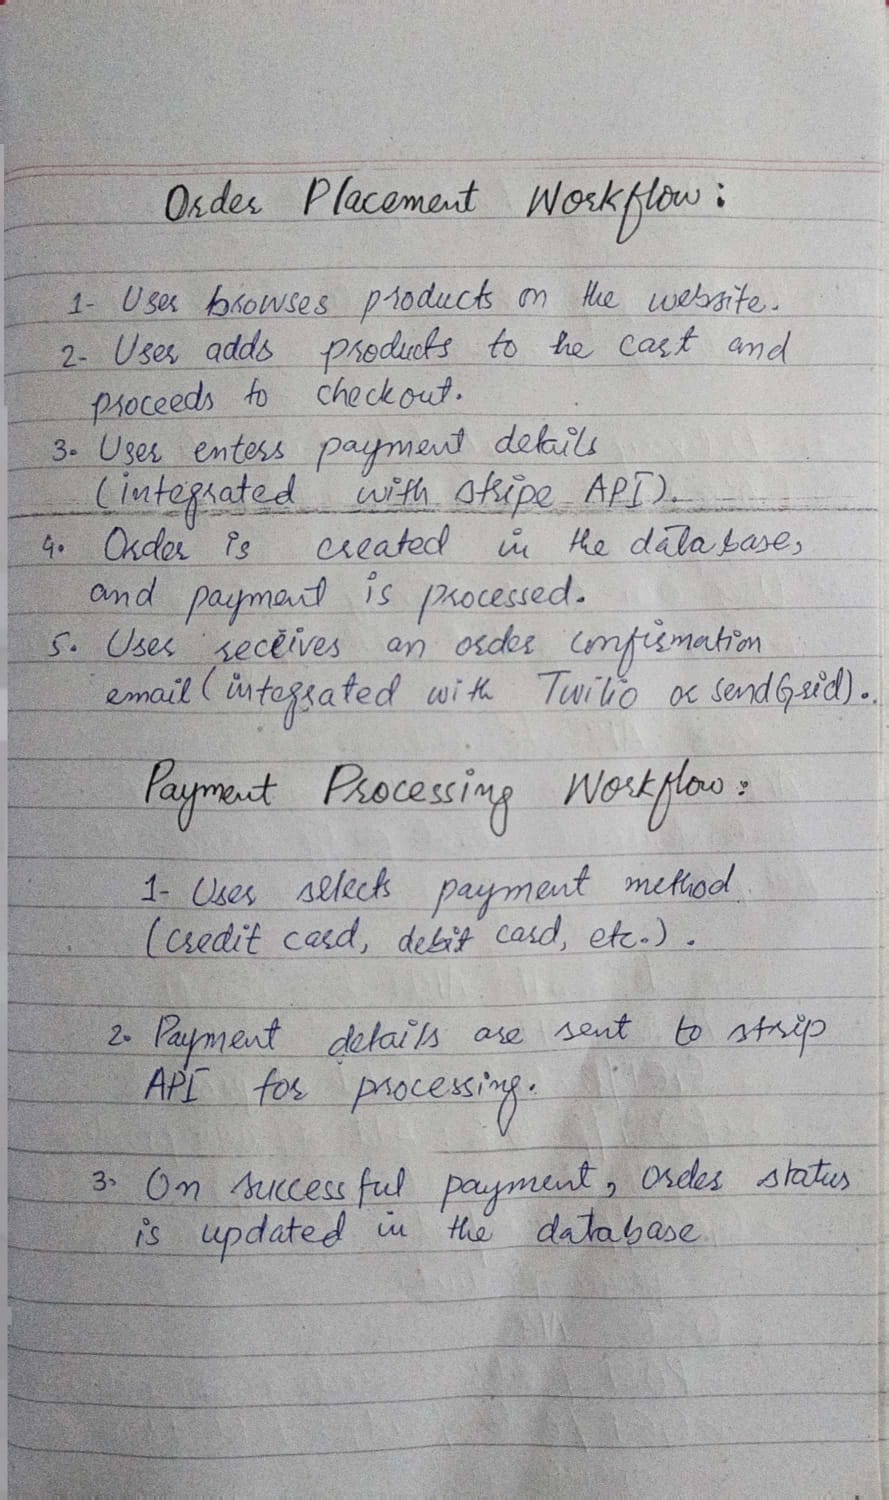 Order Placement Workflow:
1- User browses products on the website.
2- User adds products to he cart and
proceeds to checkout.
3. User enters payment details
(integrated with stripe API).
4. Order is created in the database,
and payment is processed.
5. User receives an order confirmation
email (integrated with Twilio or SendGrid).
Payment Processing Workflow:
1- User selects payment method
(credit card, debit card, etc.).
2. Payment details are sent to strip
API for processing.
3. On successful payment, order status
is updated in the database